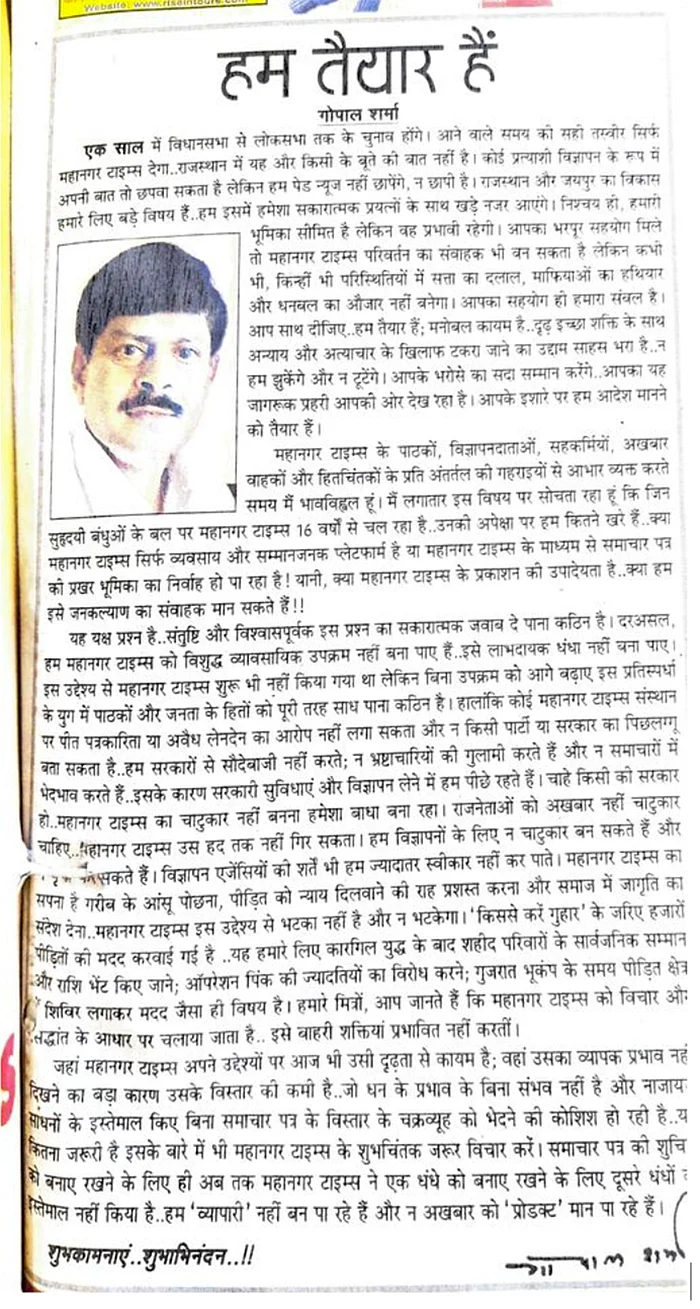 Website. www.riseintoure.com
हम तैयार हैं
गोपाल शर्मा
एक साल में विधानसभा से लोकसभा तक के चुनाव होंगे। आने वाले समय की सही तस्वीर सिर्फ
महानगर टाइम्स देगा..राजस्थान में यह और किसी के बूते की बात नहीं है। कोई प्रत्याशी विज्ञापन के रूप में
अपनी बात तो छपवा सकता है लेकिन हम पेड न्यूज नहीं छापेंगे, न छापी है। राजस्थान और जयपुर का विकास
हमारे लिए बड़े विषय हैं..हम इसमें हमेशा सकारात्मक प्रयत्नों के साथ खड़े नजर आएंगे। निश्चय ही, हमारी
भूमिका सीमित है लेकिन वह प्रभावी रहेगी। आपका भरपूर सहयोग मिले
तो महानगर टाइम्स परिवर्तन का संवाहक भी बन सकता है लेकिन कभी
भी, किन्हीं भी परिस्थितियों में सत्ता का दलाल, माफियाओं का हथियार
और धनबल का औजार नहीं बनेगा। आपका सहयोग ही हमारा संबल है।
आप साथ दीजिए..हम तैयार हैं; मनोबल कायम है..दृढ़ इच्छा शक्ति के साथ
अन्याय और अत्याचार के खिलाफ टकरा जाने का उद्दाम साहस भरा है..न
हम झुकेंगे और न टूटेंगे। आपके भरोसे का सदा सम्मान करेंगे..आपका यह
जागरूक प्रहरी आपकी ओर देख रहा है। आपके इशारे पर हम आदेश मानने
को तैयार हैं।
महानगर टाइम्स के पाठकों, विज्ञापनदाताओं, सहकर्मियों, अखबार
वाहकों और हितचिंतकों के प्रति अंतर्तल की गहराइयों से आभार व्यक्त करते
समय मैं भावविह्वल हूं। मैं लगातार इस विषय पर सोचता रहा हूं कि जिन
सुहृदयी बंधुओं के बल पर महानगर टाइम्स 16 वर्षों से चल रहा है..उनकी अपेक्षा पर हम कितने खरे हैं..क्या
महानगर टाइम्स सिर्फ व्यवसाय और सम्मानजनक प्लेटफार्म है या महानगर टाइम्स के माध्यम से समाचार पत्र
की प्रखर भूमिका का निर्वाह हो पा रहा है! यानी, क्या महानगर टाइम्स के प्रकाशन की उपादेयता है..क्या हम
इसे जनकल्याण का संवाहक मान सकते हैं!!
यह यक्ष प्रश्न है..संतुष्टि और विश्वासपूर्वक इस प्रश्न का सकारात्मक जवाब दे पाना कठिन है। दरअसल,
हम महानगर टाइम्स को विशुद्ध व्यावसायिक उपक्रम नहीं बना पाए हैं..इसे लाभदायक धंधा नहीं बना पाए।
इस उद्देश्य से महानगर टाइम्स शुरू भी नहीं किया गया था लेकिन बिना उपक्रम को आगे बढ़ाए इस प्रतिस्पर्धा
के युग में पाठकों और जनता के हितों को पूरी तरह साध पाना कठिन है। हालांकि कोई महानगर टाइम्स संस्थान
पर पीत पत्रकारिता या अवैध लेनदेन का आरोप नहीं लगा सकता और न किसी पार्टी या सरकार का पिछलग्गू
बता सकता है..हम सरकारों से सौदेबाजी नहीं करते; न भ्रष्टाचारियों की गुलामी करते हैं और न समाचारों में
भेदभाव करते हैं..इसके कारण सरकारी सुविधाएं और विज्ञापन लेने में हम पीछे रहते हैं। चाहे किसी की सरकार
हो..महानगर टाइम्स का चाटुकार नहीं बनना हमेशा बाधा बना रहा। राजनेताओं को अखबार नहीं चाटुकार
चाहिए..महानगर टाइम्स उस हद तक नहीं गिर सकता। हम विज्ञापनों के लिए न चाटुकार बन सकते हैं और
सकते हैं। विज्ञापन एजेंसियों की शर्तें भी हम ज्यादातर स्वीकार नहीं कर पाते। महानगर टाइम्स का
सपना है गरीब के आंसू पोछना, पीड़ित को न्याय दिलवाने की राह प्रशस्त करना और समाज में जागृति का
संदेश देना..महानगर टाइम्स इस उद्देश्य से भटका नहीं है और न भटकेगा। 'किससे करें गुहार' के जरिए हजारों
पीड़ितों की मदद करवाई गई है ..यह हमारे लिए कारगिल युद्ध के बाद शहीद परिवारों के सार्वजनिक सम्मान
और राशि भेंट किए जाने; ऑपरेशन पिंक की ज्यादतियों का विरोध करने; गुजरात भूकंप के समय पीड़ित क्षेत्र
शिविर लगाकर मदद जैसा ही विषय है। हमारे मित्रों, आप जानते हैं कि महानगर टाइम्स को विचार और
सिद्धांत के आधार पर चलाया जाता है.. इसे बाहरी शक्तियां प्रभावित नहीं करतीं।
जहां महानगर टाइम्स अपने उद्देश्यों पर आज भी उसी दृढ़ता से कायम है; वहां उसका व्यापक प्रभाव नहीं
दिखने का बड़ा कारण उसके विस्तार की कमी है..जो धन के प्रभाव के बिना संभव नहीं है और नाजायज
साधनों के इस्तेमाल किए बिना समाचार पत्र के विस्तार के चक्रव्यूह को भेदने की कोशिश हो रही है..य
कितना जरूरी है इसके बारे में भी महानगर टाइम्स के शुभचिंतक जरूर विचार करें। समाचार पत्र की शुचि
को बनाए रखने के लिए ही अब तक महानगर टाइम्स ने एक धंधे को बनाए रखने के लिए दूसरे धंधों
इस्तेमाल नहीं किया है..हम 'व्यापारी' नहीं बन पा रहे हैं और न अखबार को 'प्रोडक्ट' मान पा रहे हैं।
शुभकामनाएं..शुभाभिनंदन..!!
गोपाल शर्मा